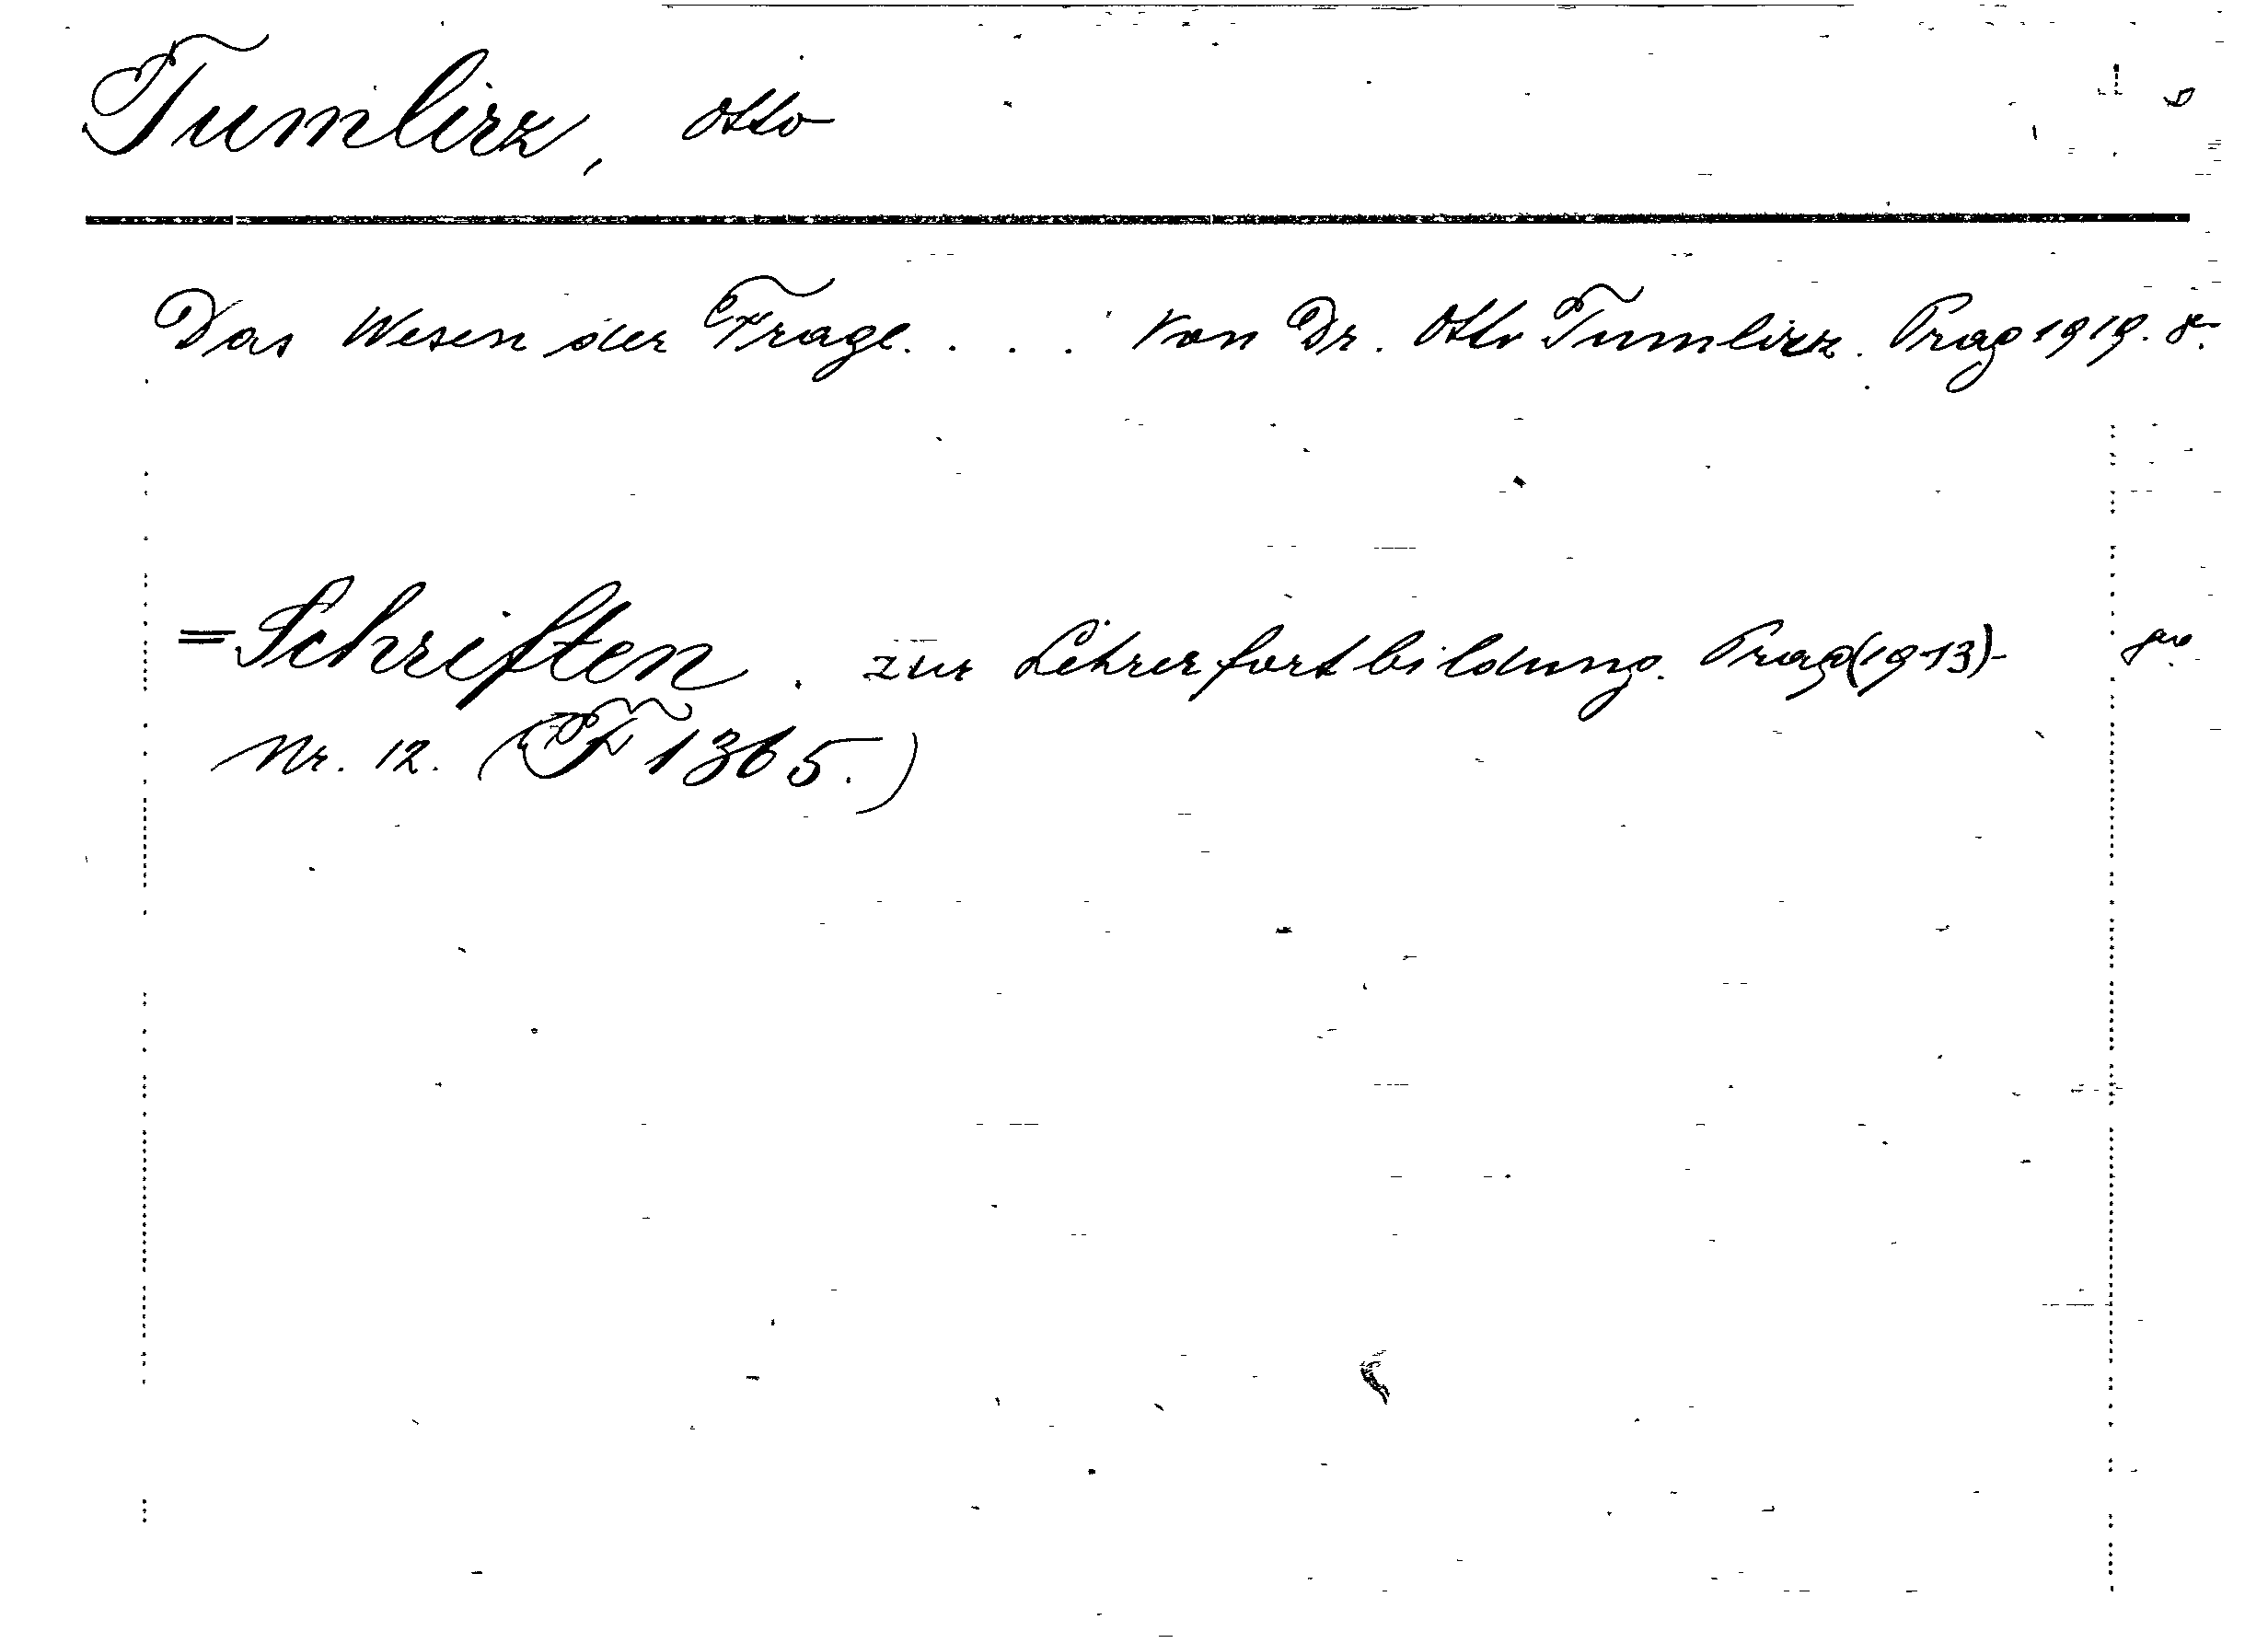 Tumlirz, Otto
Das Wesen der Frage. . . . Von Dr. Otto Tumlirz. Prag 1919. 8°.
=Schriften . zur Lehrerfortbildung. Prag (1913)-
Nr. 12. (F 1365.)